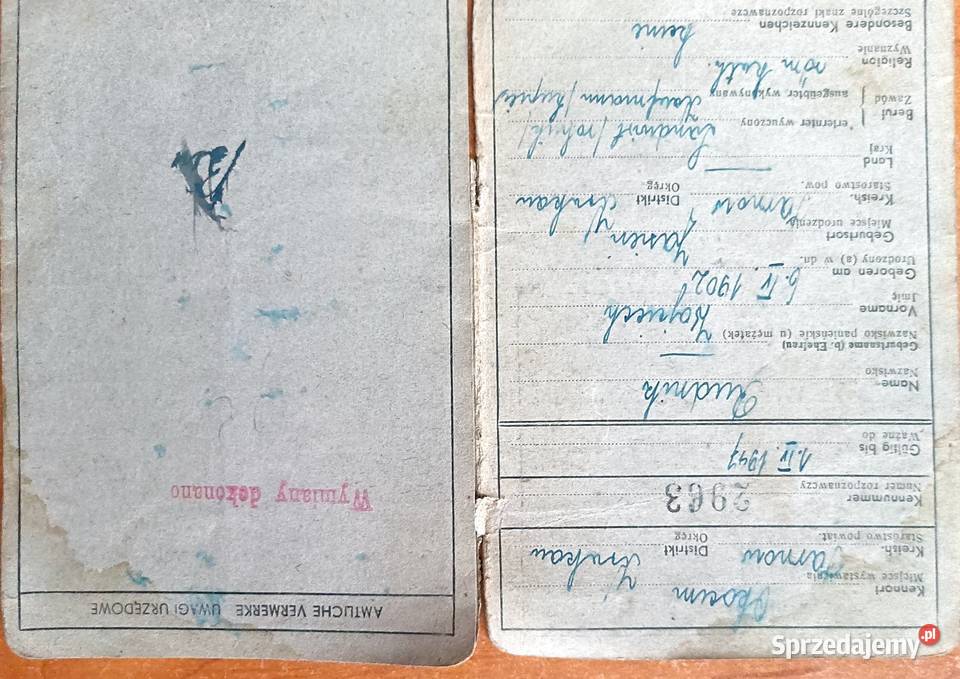 Kennort
Miejsce wystawienia
Okocim
Kreish.
Starostwo powiat.
Tarnow
Distrikt
Okręg
Krakau
Kennummer
Numer rozpoznawczy
2963
Gültig bis
Ważne do
1. IV. 1947
Name
Nazwisko
Rudnik
Geburtsname (b. Ehefrau)
Nazwisko panieńskie (u mężatek)
Vorname
Imię
Wojciech
Geboren am
Urodzony (a) w dn.
6. IV. 1902
Geburtsort
Miejsce urodzenia
Jasień
Kreish.
Starostwo pow.
Tarnow
Distrikt
Okręg
Krakau
Land
Kraj
Beruf
Zawód
erlernter wyuczony
Landwirt / rolnik /
ausgeübter wykonywany
Kaufmann / kupiec
Religion
Wyznanie
röm. kath.
Besondere Kennzeichen
Szczególne znaki rozpoznawcze
keine
AMTLICHE VERMERKE UWAGI URZĘDOWE
Wymiany dokonano
Sprzedajemy.pl